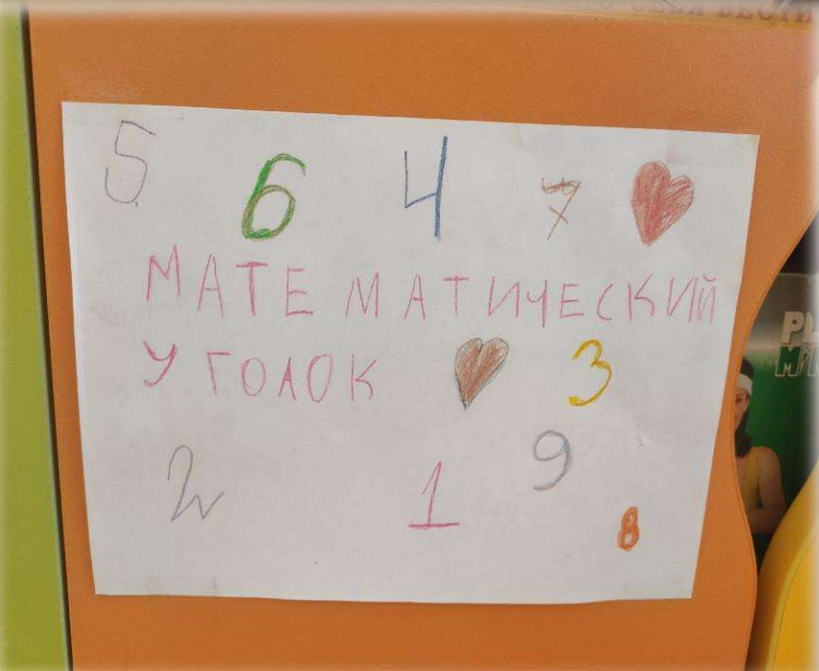 5 6 4 7
МАТЕМАТИЧЕСКИЙ
УГОЛОК 3
9
2 1
8